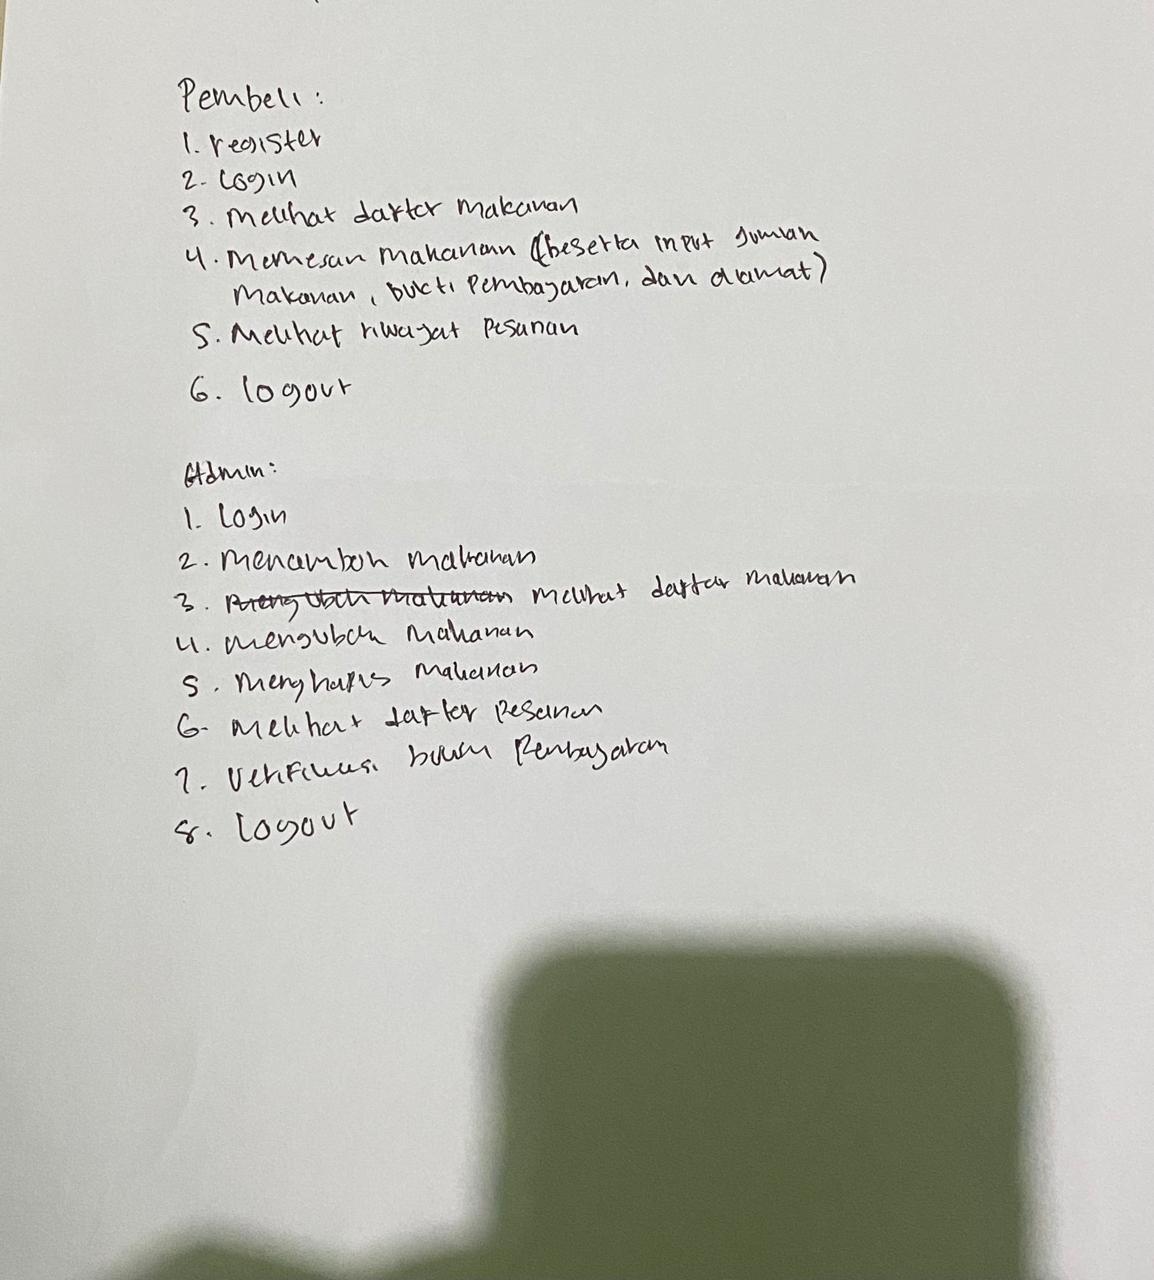 Pembeli :
1. register
2. Login
3. Melihat daftar makanan
4. Memesan makanan (beserta input jumlah
makanan, bukti pembayaran, dan alamat)
5. Melihat riwayat pesanan
6. logout
Admin:
1. Login
2. menambah makanan
3. mengubah makanan melihat daftar makanan
4. mengubah makanan
5. menghapus makanan
6. melihat daftar pesanan
7. Verifikasi bukti Pembayaran
8. Logout